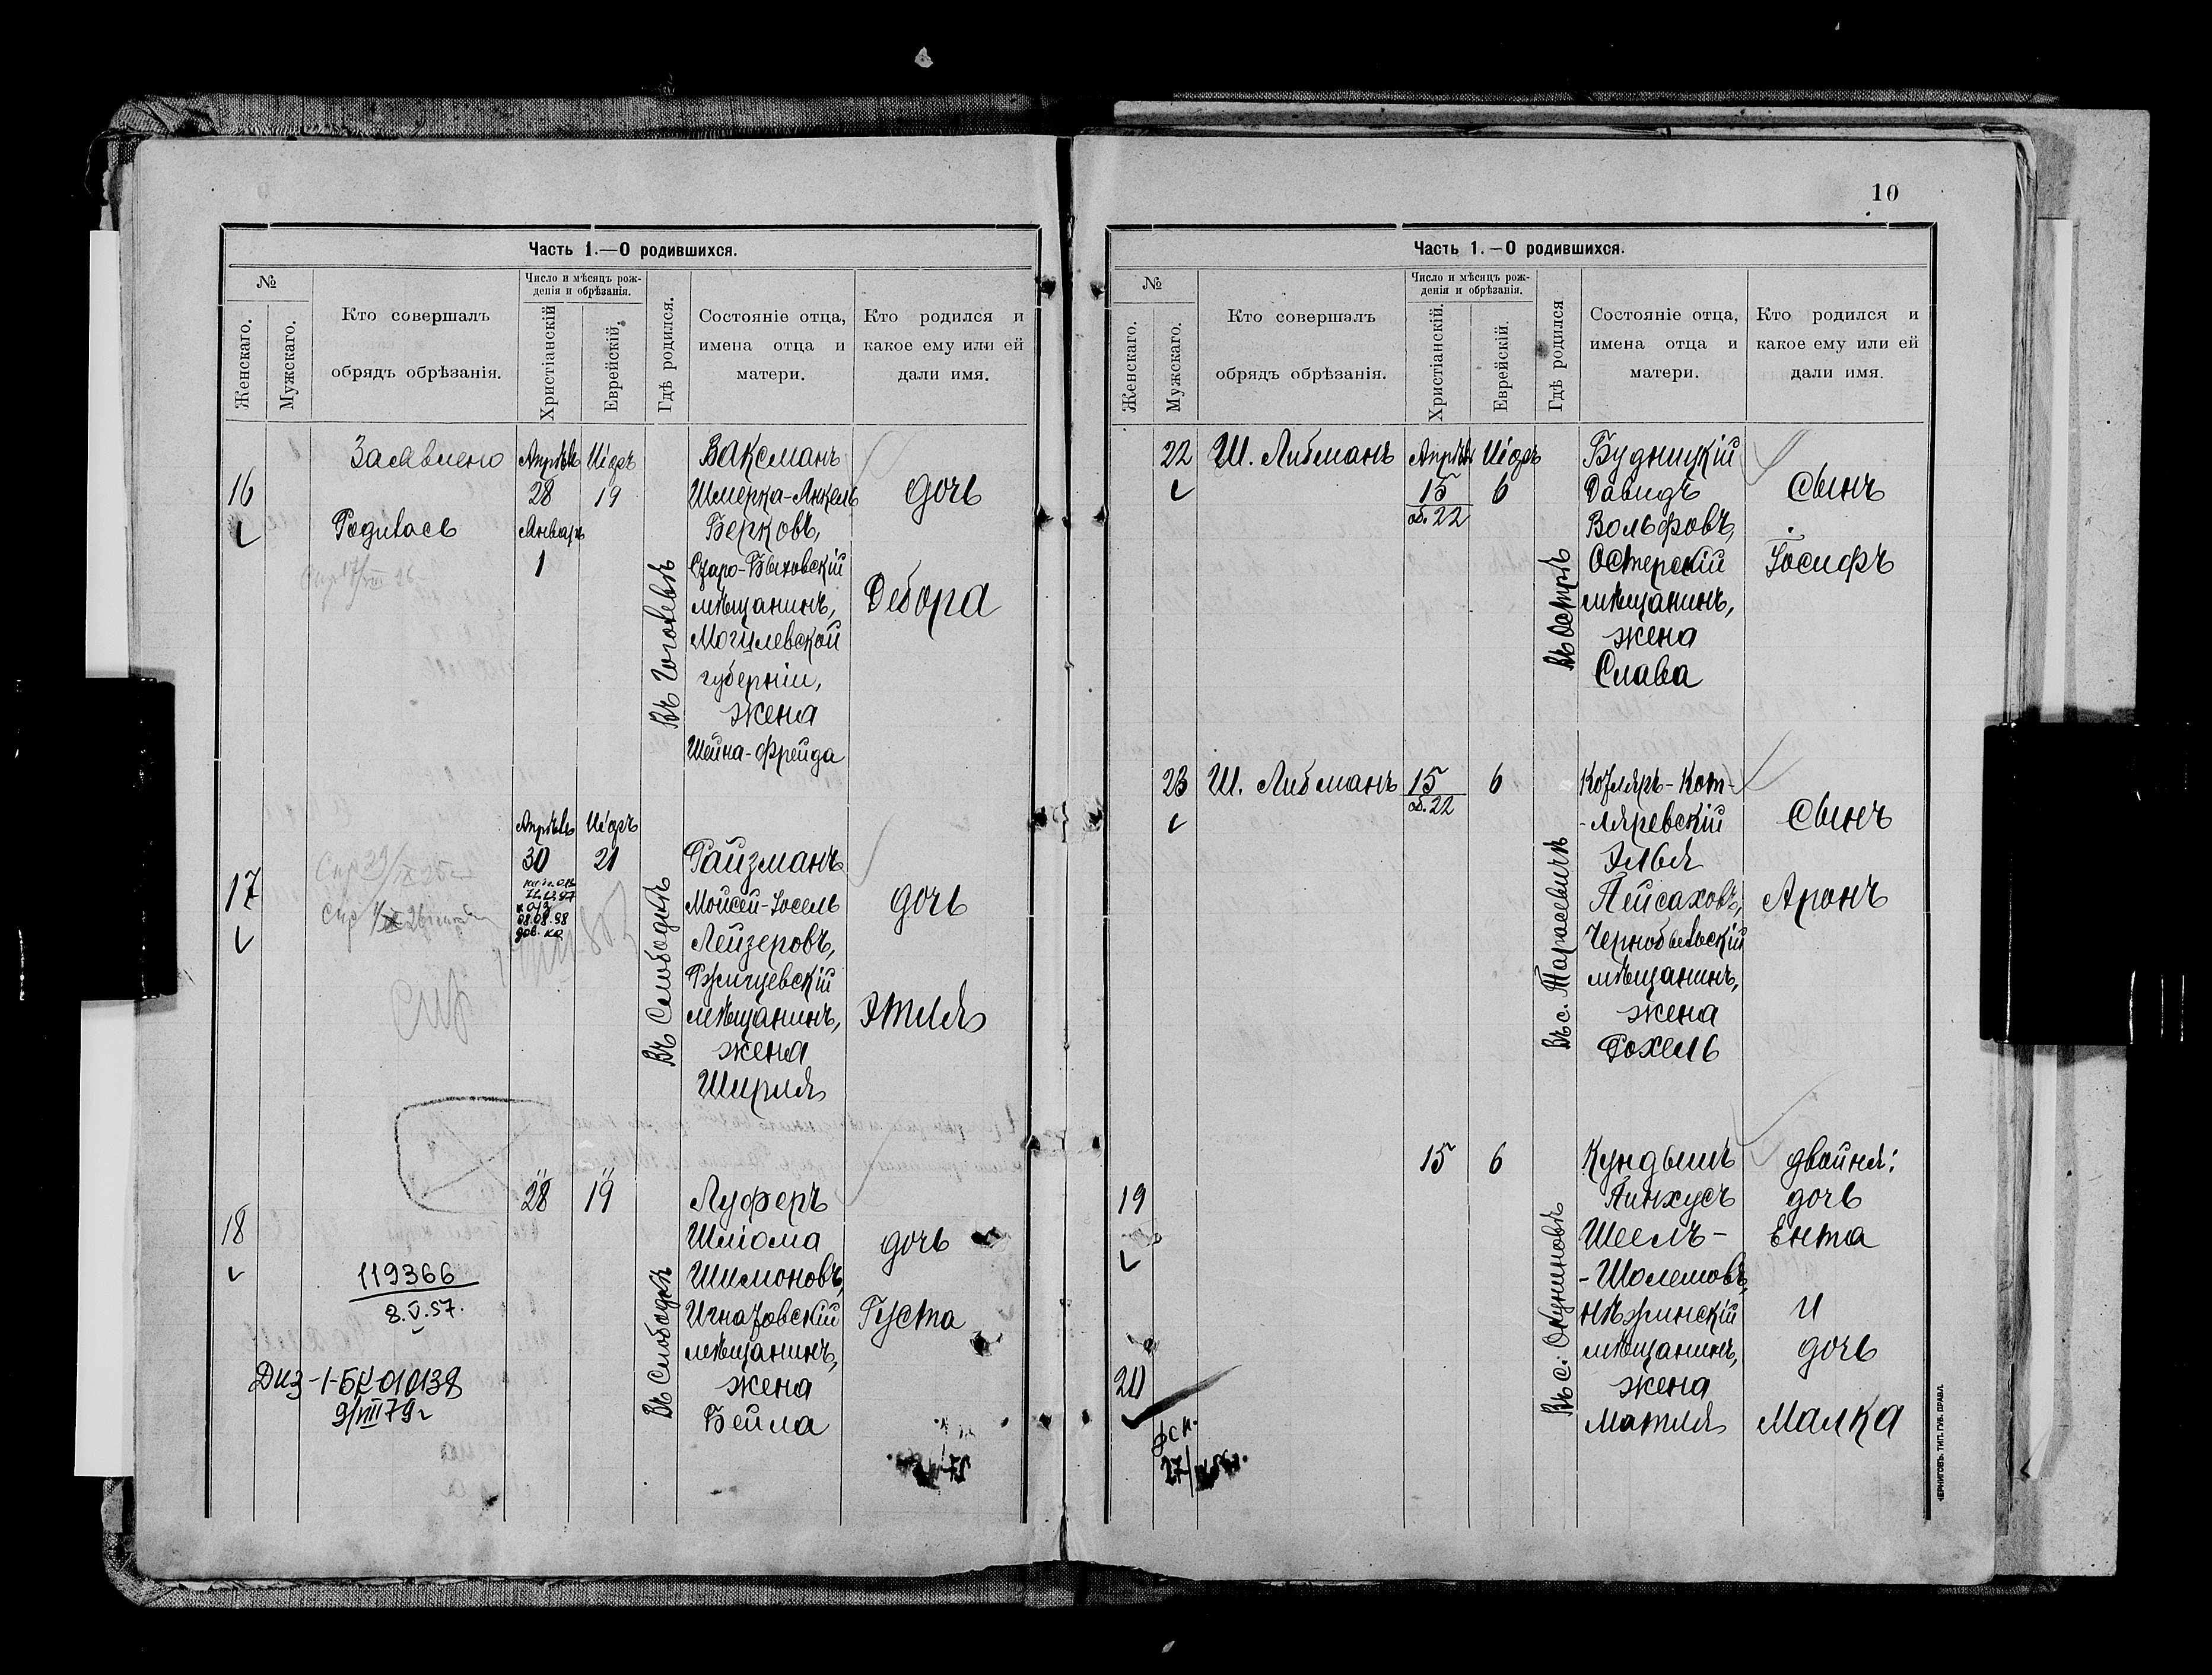 Часть 1.—О родившихся.
№
Женскаго.
Мужскаго.
Кто совершалъ
обрядъ обрѣзанія.
Число и мѣсяцъ рож-
денія и обрѣзанія.
Христіанскій
Еврейскій.
Гдѣ родился.
Состояніе отца,
имена отца и
матери.
Кто родился и
какое ему или ей
дали имя.
16
Заявлено
Родилась
Апрѣль
28
Январь
1
Иіоръ
19
Ваксманъ
Шмерка-Янкель
Берковъ,
Старо-Быховскій
мѣщанинъ,
Могилевской
губерніи,
жена
Шейна-Фрейда
дочь
Дебора
17
Апрѣль
30
Иіоръ
21
08.08.98
Въ Слободкѣ
Райзманъ
Мойсей-Іосель
Лейзеровъ,
Ржищевскій
мѣщанинъ,
жена
Ширля
дочь
Этля
18
28
19
119366
8.V.57.
Диз-1-БК 010138
9/VIII 79г
Въ Слободкѣ
Луферъ
Шліома
Шимоновъ,
Игнатовскій
мѣщанинъ,
жена
Бейла
дочь
Густа
10
Часть 1.—О родившихся.
№
Женскаго.
Мужскаго.
Кто совершалъ
обрядъ обрѣзанія.
Число и мѣсяцъ рож-
денія и обрѣзанія.
Христіанскій.
Еврейскій.
Гдѣ родился
Состояніе отца,
имена отца и
матери.
Кто родился и
какое ему или ей
дали имя.
22
Ш. Либманъ
Апрѣль
15
об. 22
Иіоръ
6
Въ Острѣ
Будницкій
Давидъ
Вольфовъ,
Остерскій
мѣщанинъ,
жена
Слава
сынъ
Іосифъ
23
Ш. Либманъ
15
об. 22
6
Въ с. Тарасевичѣ
Котляръ-Кот-
-ляревскій
Элья
Пейсаховъ,
Чернобыльскій
мѣщанинъ,
жена
Рохель
сынъ
Аронъ
19
20
15
6
Въ с. Окуниновѣ
Кундышъ
Пинхусъ
Шеелъ-
-Шолемовъ,
Нѣжинскій
мѣщанинъ,
жена
Матля
двойня:
дочь
Ента
и
дочь
Малка
ЧЕРНИГОВЪ. ТИП. ГУБ. ПРАВЛ.